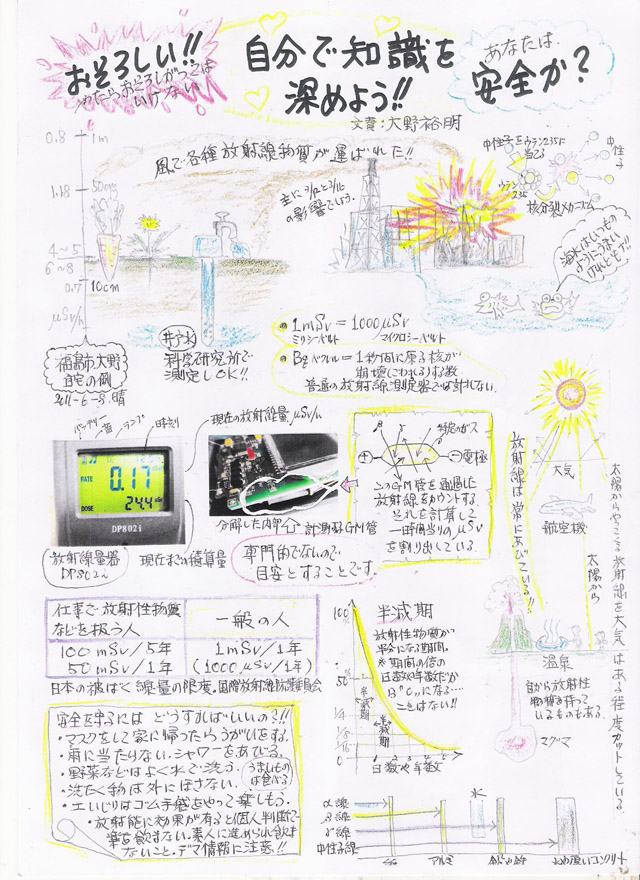 おそろしい!!
自分で知識を
深めよう!!
あなたは、
安全か?
文責:大野裕明
風で各種放射線物質が運ばれた!!
主に
の影響でしょう。
中性子をウラン235に
当てる
中性子
ウラン
235
核分裂メカニズム
0.8
1m
1.18
50cm
4~5
6~8
0.7
10cm
μSv/h
海水はいつもの
ように
井戸水
科学研究所で
測定しOK!!
福島市大野
自宅の側
2011-6-8.晴
1mSv=1000μSv
ミリシーベルト/マイクロシーベルト
Bqベクレル=1秒間に原子核が
崩壊(こわれる)する数
普通の放射線測定器では計れない。
バッテリー
音
ランプ
時刻
現在の放射線量 μSv/h
RATE
0.17
DOSE
24.4
DP802i
放射線量器
DP802i
現在までの積算量
分解した内部
計測器GM管
専門的でないので
目安とすることです。
β
γ
特定のガス
+
-電極
このGM管を通過した
放射線をカウントする
それを計算して
一時間当りのμSv
を割り出している。
放射線は常にあびている!!
大気
航空機
太陽から
太陽からやってくる放射線を大気はある程度カットしている。
温泉
昔から放射性
物質を持って
いるものもある。
マグマ
仕事で放射性物質
などを扱う人
一般の人
100mSv/5年
50mSv/1年
1mSv/1年
(1000μSv/1年)
日本の被ばく線量の限度。国際放射線防護委員会
半減期
放射性物質が
半分になる期間。
※期間の倍の
日数や年数だが
"0"になる…
ことはない!!
100%
50
1/4
1/8
1/16
0
半減期
半減期
日数や年数
安全を守るには どうすればいいの?!!
・マスクをして家に帰ったらうがいをする。
・雨に当たりない。シャワーをあびる。
・野菜などはよく水で洗う。
うまいもの
は食べる
・洗たく物は外にほさない。
・土いじりはゴム手袋をやって楽しもう。
・放射能に効果が有ると個人判断で
薬を飲まない。素人に進められ飲ま
ないこと。デマ情報に注意!!
α線
β線
γ線
中性子線
水
紙
アルミ
コンクリート